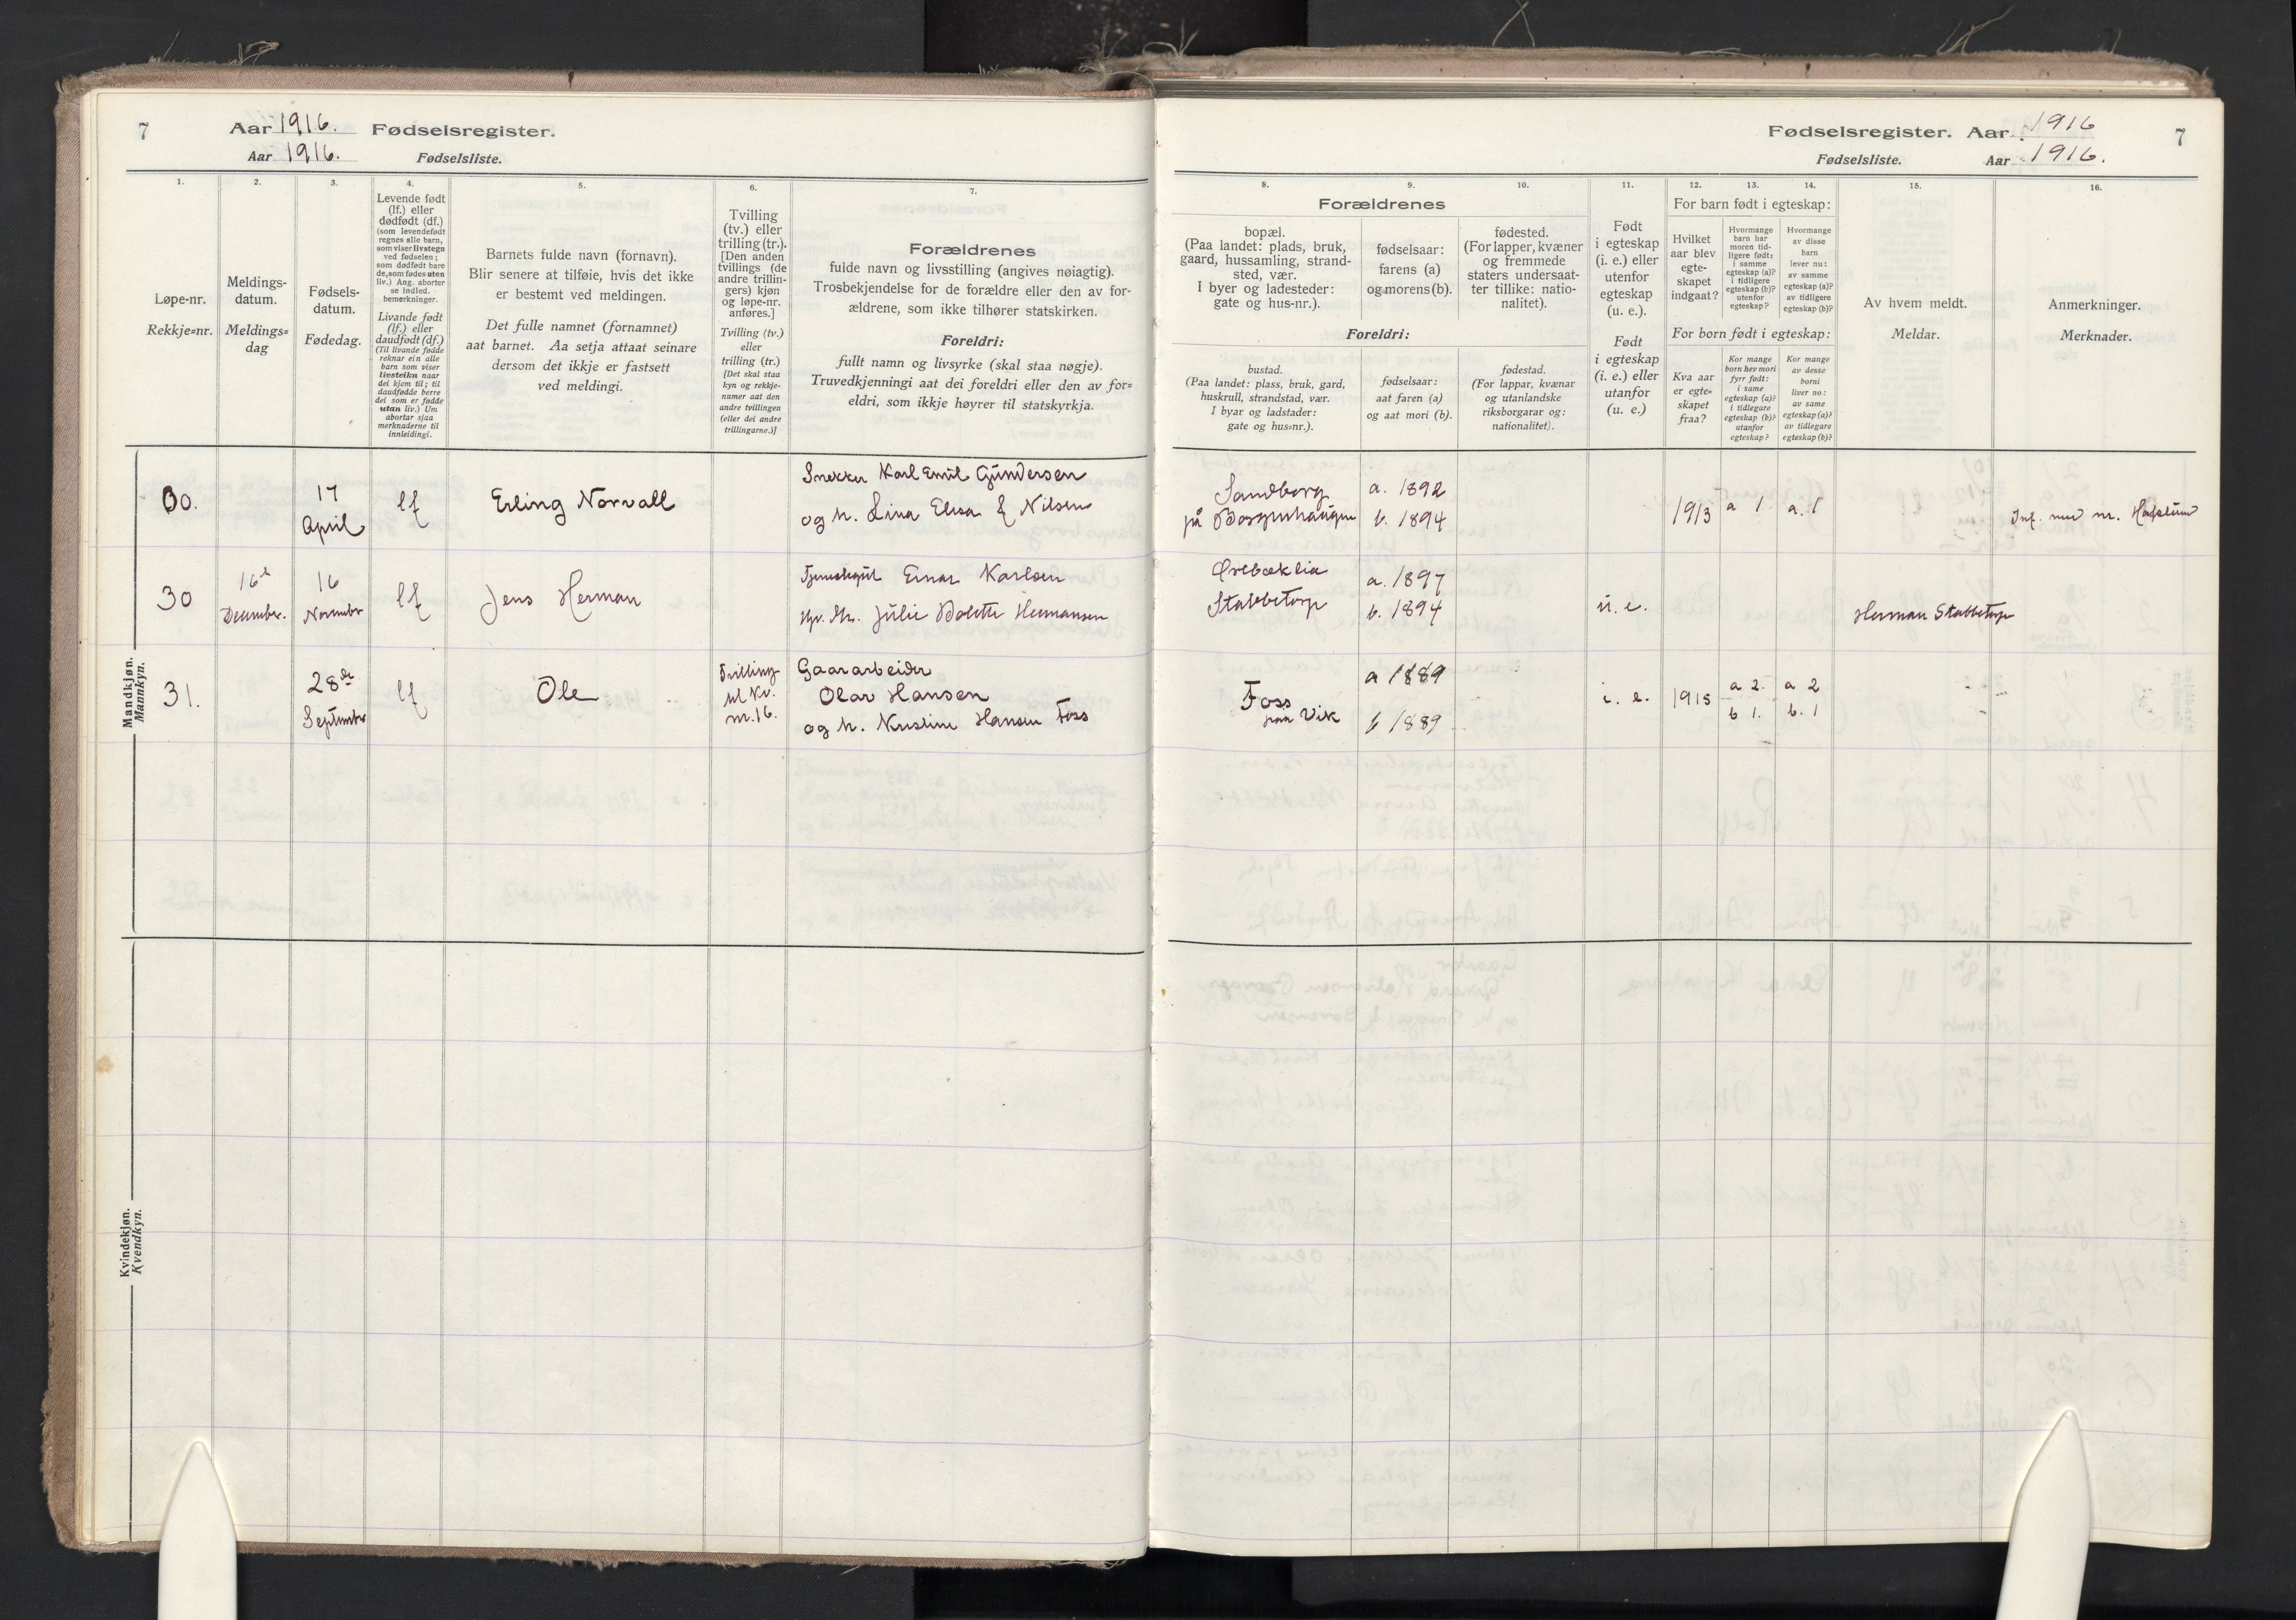 7
Aar 1916. Fødselsregister.
Aar 1916. Fødselsliste.
1.
2.
3.
4.
5.
6.
7.
Løpe-nr.
Rekkje=nr.
Meldings-
datum.
Meldings=
dag
Fødsels-
datum.
Fødedag.
Levende født
(lf.) eller
dødfødt (df.)
(som levendefødt
regnes alle barn,
som viser livstegn
ved fødselen;
som dødfødt bare
de, som fødes uten
liv.) Ang. aborter
se indled.
bemerkninger.
Livande født
(lf.) eller
daudfødt (df.)
(Til livande fødde
reknar ein alle
barn som viser
livsteikn naar
dei kjem til; til
daudfødde berre
dei som er fødde
utan liv.) Um
abortar sjaa
merknaderne til
innleidingi.
Barnets fulde navn (fornavn).
Blir senere at tilføie, hvis det ikke
er bestemt ved meldingen.
Det fulle namnet (fornamnet)
aat barnet. Aa setja attaat seinare
dersom det ikkje er fastsett
ved meldingi.
Tvilling
(tv.) eller
trilling (tr.).
[Den anden
tvillings (de
andre trillin-
gers) kjøn
og løpe-nr.
anføres.]
Tvilling (tv.)
eller
trilling (tr.)
[Det skal staa
kyn og rekkje-
numer aat den
andre tvillingen
(eller dei andre
trillingarne.)]
Forældrenes
fulde navn og livsstilling (angives nøiagtig).
Trosbekjendelse for de forældre eller den av for-
ældrene, som ikke tilhører statskirken.
Foreldri:
fullt namn og livsyrke (skal staa nøgje).
Truvedkjenningi aat dei foreldri eller den av for=
eldri, som ikkje høyrer til statskyrkja.
Mandkjøn.
Mannkyn.
00.
17
April
lf
Erling Norvall
Snekker Karl Emil Gundersen
og h. Lina Elisa f Nilsen
30
16de
December.
16
November
lf
Jens Herman
Tjenestegut Einar Karlsen
Julie Bolette Hermansen
31.
28de
September
lf
Ole
Tvilling
til Kv.
nr. 16.
Gaararbeider
Olav Hansen
og h. Kristine Hansen Foss
Kvindekjøn.
Kvendkyn.
Fødselsregister. Aar 1916
7
Fødselsliste. Aar 1916.
8.
9.
10.
11.
12.
13.
14.
15.
16.
Forældrenes
bopæl.
(Paa landet: plads, bruk,
gaard, hussamling, strand-
sted, vær.
I byer og ladesteder:
gate og hus-nr.).
fødselsaar:
farens (a)
og morens (b).
fødested.
(For lapper, kvæner
og fremmede
staters undersaat-
ter tillike: natio-
nalitet).
Foreldri:
bustad.
(Paa landet: plass, bruk, gard,
huskrull, strandstad, vær.
I byar og ladstader:
gate og hus=nr.).
fødselsaar:
aat faren (a)
og aat mori (b).
fødestad.
(For lappar, kvænar
og utanlandske
riksborgarar og:
nationalitet).
Født
i egteskap
(i. e.) eller
utenfor
egteskap
(u. e.).
Født
i egteskap
(i. e.) eller
utanfor
(u. e.)
For barn født i egteskap:
Hvilket
aar blev
egte-
skapet
indgaat?
Hvormange
barn har
moren tid-
ligere født:
i samme
egteskap (a)?
i tidligere
egteskap (b)?
utenfor
egteskap?
Hvormange
av disse
barn
lever nu:
av samme
egteskap (a)?
av tidligere
egteskap (b)?
For born født i egteskap:
Kva aar
er egte=
skapet
fraa?
Kor mange
born hev mori
fyrr født:
i same
egteskap (a)?
i tidlegare
egteskap (b)?
utanfor
egteskap?
Kor mange
av desse
borni
liver no:
av same
egteskap (a)?
av tidlegare
egteskap (b)?
Av hvem meldt.
Meldar.
Anmerkninger.
Merknader.
Sandborg
på Borgenhaugen
a. 1892
b. 1894
1913
a 1
a. 1
Inf. med nr. Hafslund
Ørebæklia
Stabbetorp
a. 1897
b. 1894
u. e.
Herman Stabbetorp
Foss
Vik
a 1889
b 1889
i. e.
1915
a 2.
b 1.
a 2
b. 1